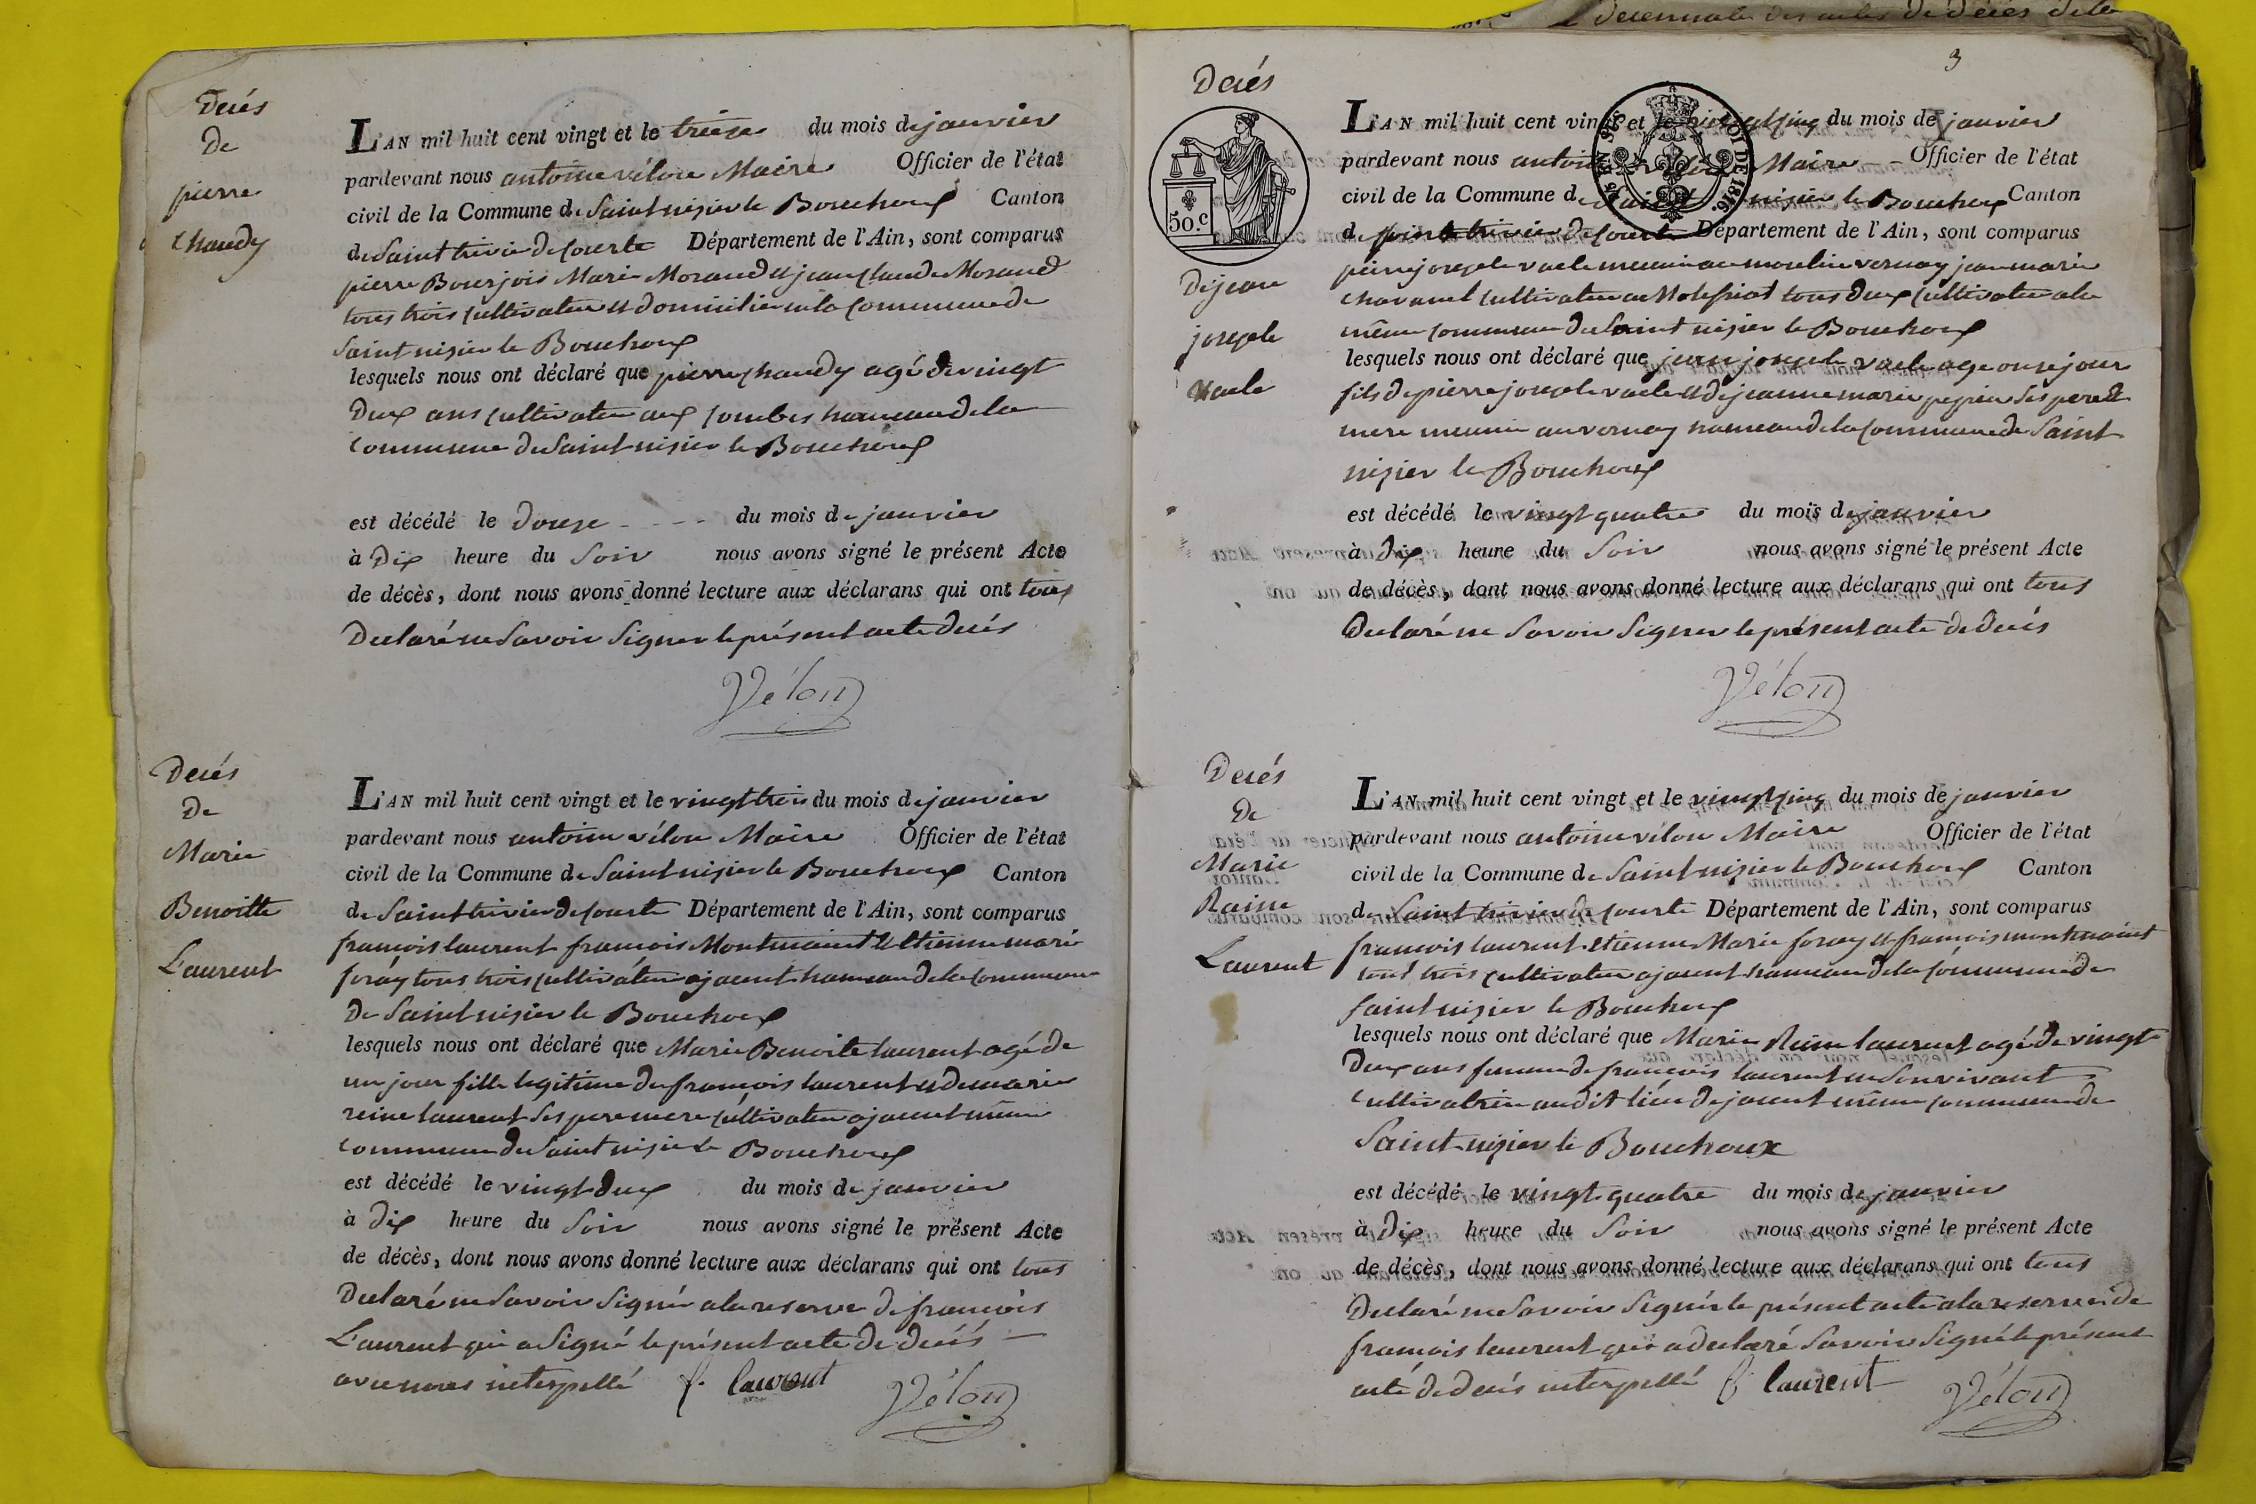 Decennale des actes de décés de la
Decés
De
pierre
Chaudy
L'AN mil huit cent vingt et le treize du mois de janvier
pardevant nous antoine vélon Maire Officier de l'état
civil de la Commune de Saint nizier le Bouchoux Canton
de Saint trivier de Courte Département de l'Ain, sont comparus
pierre Bourjois Marie Morand et jean Claude Morand
tous trois Cultivateur et domicilier en la Commune de
Saint nizier le Bouchoux
lesquels nous ont déclaré que pierre Chaudy agé de vingt
Deux ans Cultivateur aux Combes hameau de la
Commune de Saint nizier le Bouchoux
est décédé le Douze du mois de janvier
à Dix heure du Soir nous avons signé le présent Acte
de décès, dont nous avons donné lecture aux déclarans qui ont tous
Declaré ne Savoir Signer le présent acte decés
Vélon
Decés
De
Marie
Benoitte
Laurent
L'AN mil huit cent vingt et le vingt trois du mois de janvier
pardevant nous antoine vélon Maire Officier de l'état
civil de la Commune de Saint nizier le Bouchoux Canton
de Saint trivier de Courte Département de l'Ain, sont comparus
francois laurent francois Montmaint et Etienne marie
foray tous trois Cultivateur ajacent hameau de la Commune
De Saint nizier le Bouchoux
lesquels nous ont déclaré que Marie Benoite laurent agé de
un jour fille legitime de francois laurent et de marie
reine laurent Ses pere mere Cultivateur ajacent même
Commune de Saint nizier le Bouchoux
est décédé le vingt deux du mois de janvier
à Dix heure du Soir nous avons signé le présent Acte
de décès, dont nous avons donné lecture aux déclarans qui ont tous
Declaré ne Savoir Signér a la reserve de francois
Laurent qui a Signé le présent acte de decés
avec nous interpellé f. laurent
Vélon
3
Decés
50.c
LOI DE 1816.
De jean
joseph
vacle
L'AN mil huit cent vingt et le vingt cinq du mois de janvier
pardevant nous antoine vélon Maire Officier de l'état
civil de la Commune de Saint nizier le Bouchoux Canton
de Saint trivier de Courte Département de l'Ain, sont comparus
pierre joseph vacle meunier au moulin vernay jean marie
Chavanel Cultivateur au tous deux Cultivateur a la
même Commune de Saint nizier le Bouchoux
lesquels nous ont déclaré que jean joseph vacle age onze jour
fils de pierre joseph vacle et de jeanne marie Ses pere et
mere meunier au vernay hameau de la Commune de Saint
nizier le Bouchoux
est décédé le vingt quatre du mois de janvier
à Dix heure du Soir nous avons signé le présent Acte
de décès, dont nous avons donné lecture aux déclarans qui ont tous
Declaré ne Savoir Signer le présent acte de Decés
Vélon
Decés
De
Marie
Raine
Laurent
L'AN mil huit cent vingt et le vingt cinq du mois de janvier
pardevant nous antoine vélon Maire Officier de l'état
civil de la Commune de Saint nizier le Bouchoux Canton
de Saint trivier de Courte Département de l'Ain, sont comparus
francois laurent Etienne Marie foray et francois montmaint
tous trois Cultivateur ajacent hameau de la Commune de
Saint nizier le Bouchoux
lesquels nous ont déclaré que Marie Reine laurent agé de vingt
Deux ans femme de francois laurent en Son vivant
Cultivatrice audit lieu de jacent même Commune de
Saint nizier le Bouchoux
est décédé le vingt quatre du mois de janvier
à Dix heure du Soir nous avons signé le présent Acte
de décès, dont nous avons donné lecture aux déclarans qui ont tous
Declaré ne Savoir Signér le présent acte a la reserve de
francois laurent qui a declaré Savoir Signé le présent
acte de decés interpellé f. laurent
Vélon